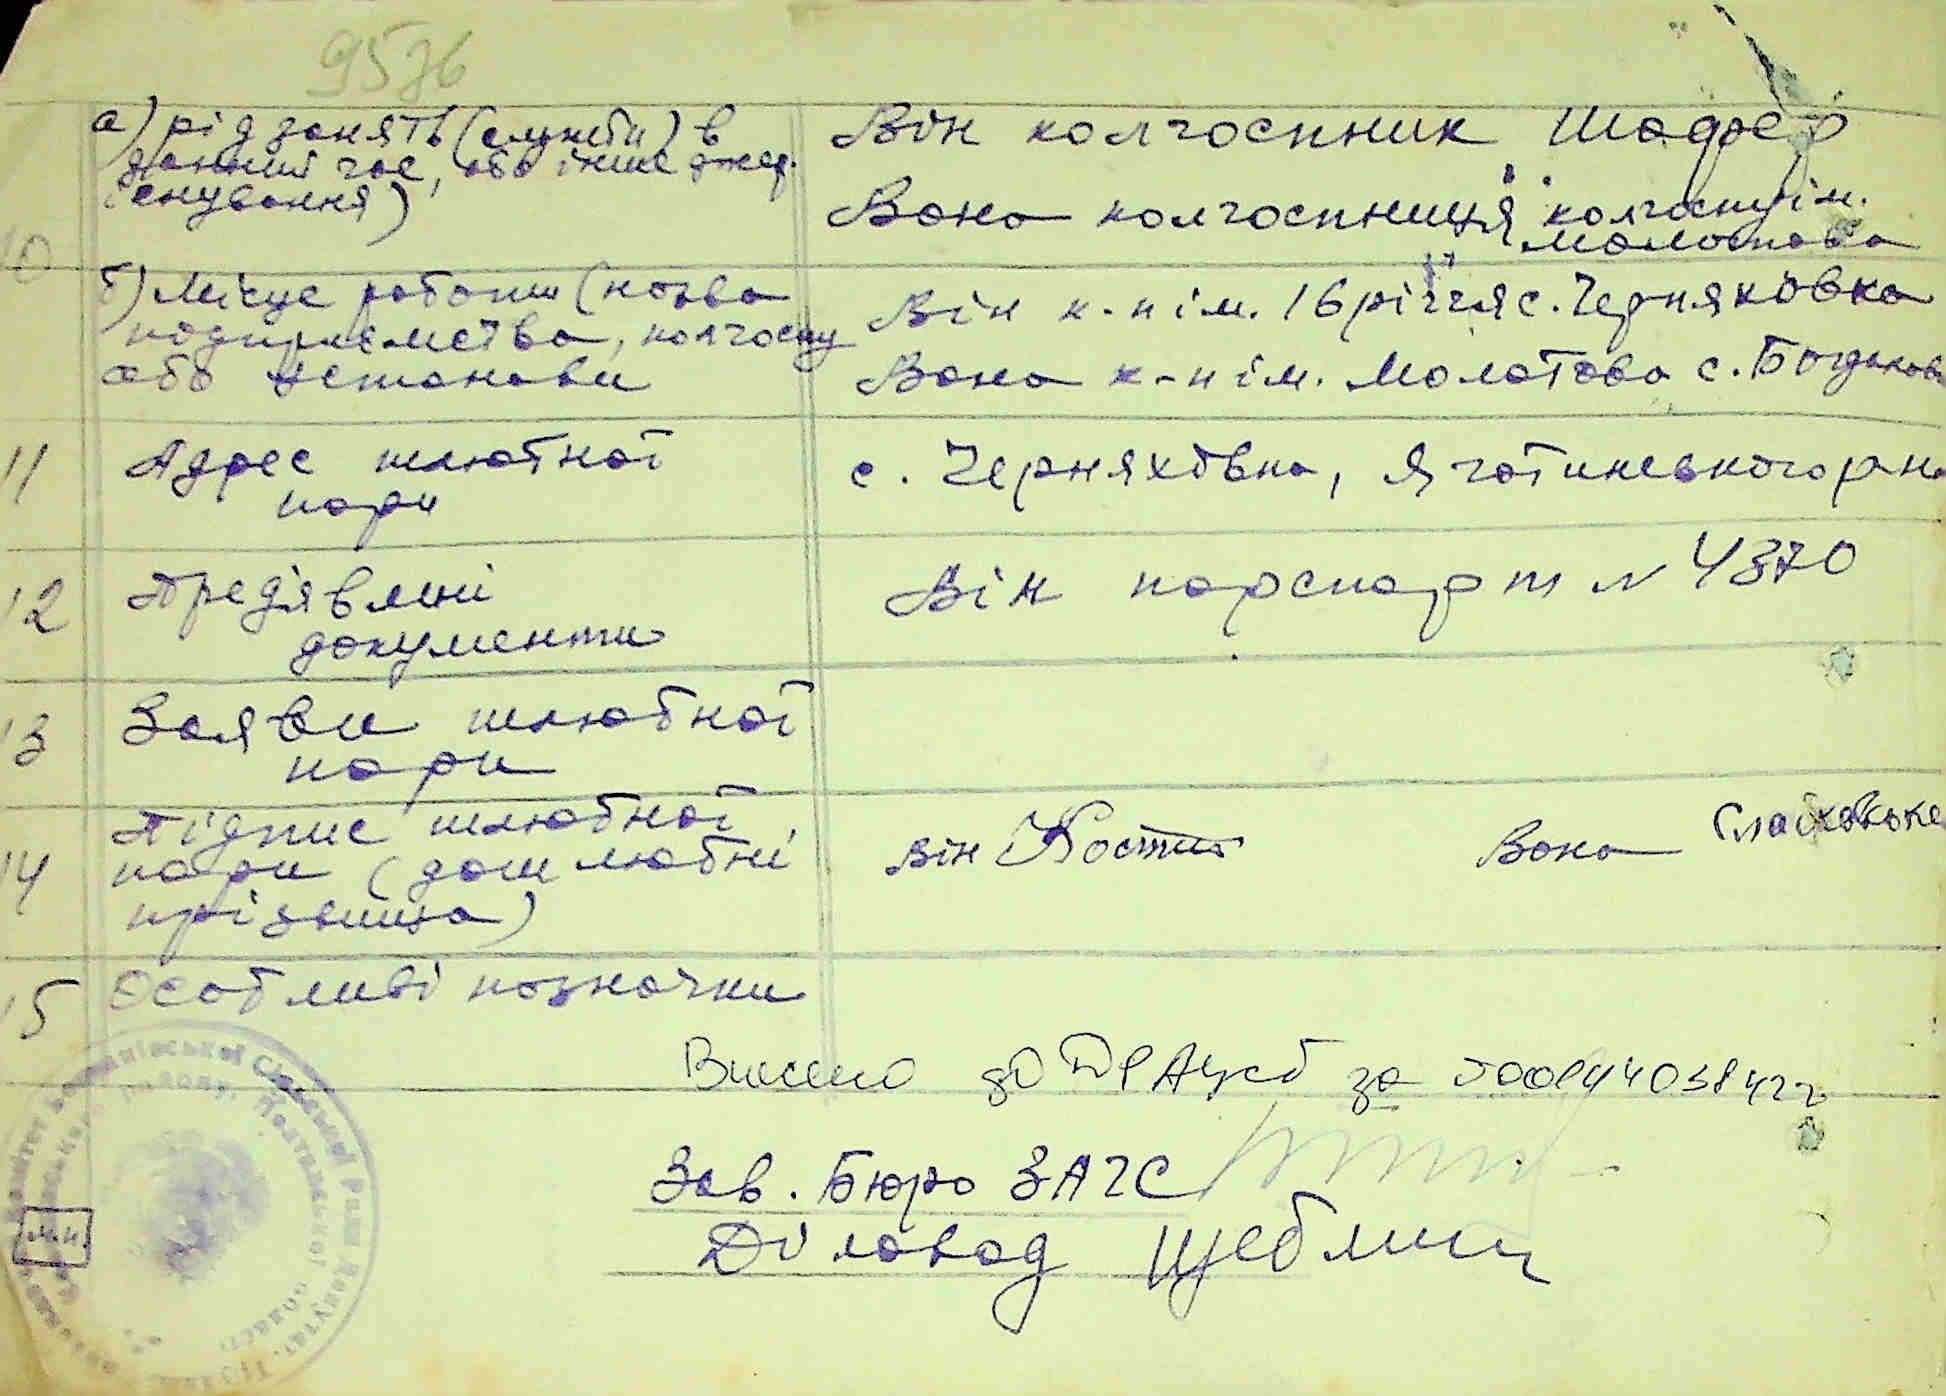 9576
а) рід занять (служби) в
даний час, або інше джер.
існування)
Він колгоспник Шофер
Вона колгоспниця колгоспу ім.
Молотова
10
б) Місце роботи (назва
підприємства, колгоспу
або установи
Він к-п ім. 16 річчя с. Черняковка
Вона к-п ім. Молотова с. Богданов
11 Адрес шлюбної
пари
с. Черняхівка, Яготинського р-н
12 Предʼявлені
документи
Він парспарт N 4370
13 Заяви шлюбної
пари
14 Підпис шлюбної
пари (дошлюбні
прізвища)
він Вона
15 Особливі позначки
Внесено до ДРАЦСГ за 00094038422
Зав. Бюро ЗАГС
Діловод
М.П.